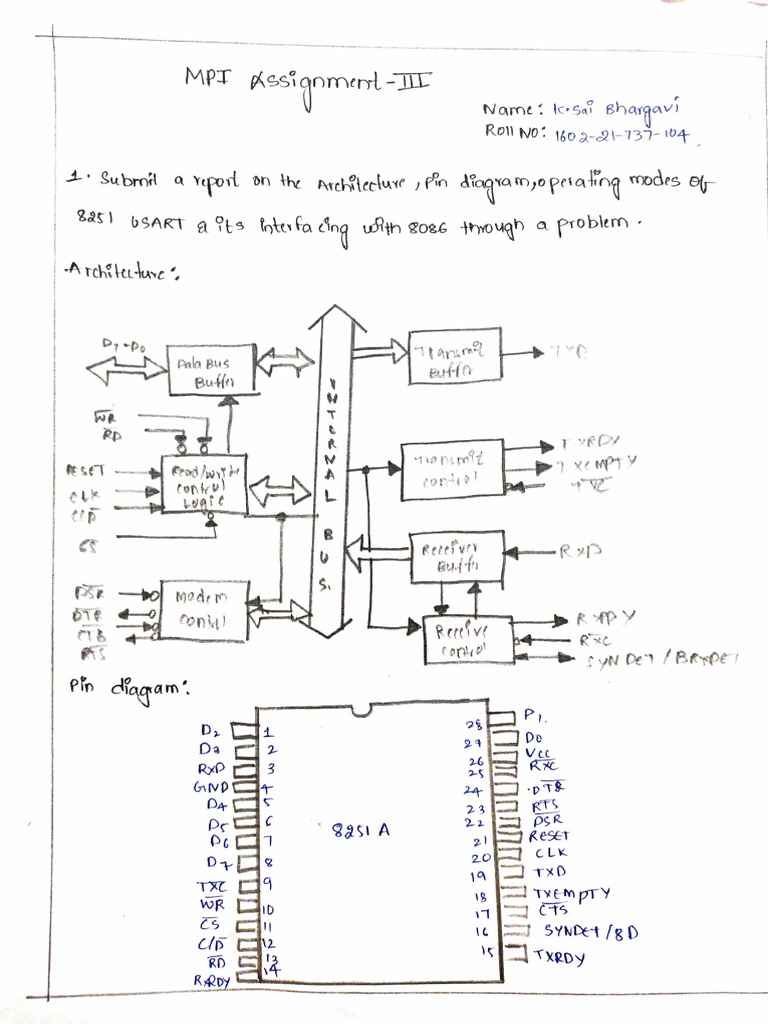 MPI Assignment-III
Name: K.Sai Bhargavi
Roll NO: 1602-21-737-104
1. Submit a report on the Architecture, Pin diagram, operating modes of
8251 USART & its interfacing with 8086 through a problem.
Architecture:
D7-D0
Data Bus
Buffer
W̅R̅
R̅D̅
RESET
CLK
C/D̅
CS
Read/write
control
Logic
D̅S̅R̅
D̅T̅R̅
C̅T̅S̅
R̅T̅S̅
Modem
Control
INTERNAL BUS.
Transmit
Buffer
TXD
Transmit
control
TXRDY
TXEMPTY
T̅X̅C̅
Receiver
Buffer
RXD
Receive
control
RXRDY
R̅X̅C̅
SYNDET/BRKDET
Pin diagram:
8251 A
D2 1
D3 2
RXD 3
GND 4
D4 5
D5 6
D6 7
D7 8
T̅X̅C̅ 9
W̅R̅ 10
C̅S̅ 11
C/D̅ 12
R̅D̅ 13
RXRDY 14
28 D1.
27 D0
26 VCC
25 R̅X̅C̅
24 D̅T̅R̅
23 R̅T̅S̅
22 D̅S̅R̅
21 RESET
20 CLK
19 TXD
18 TXEMPTY
17 C̅T̅S̅
16 SYNDET/BD
15 TXRDY